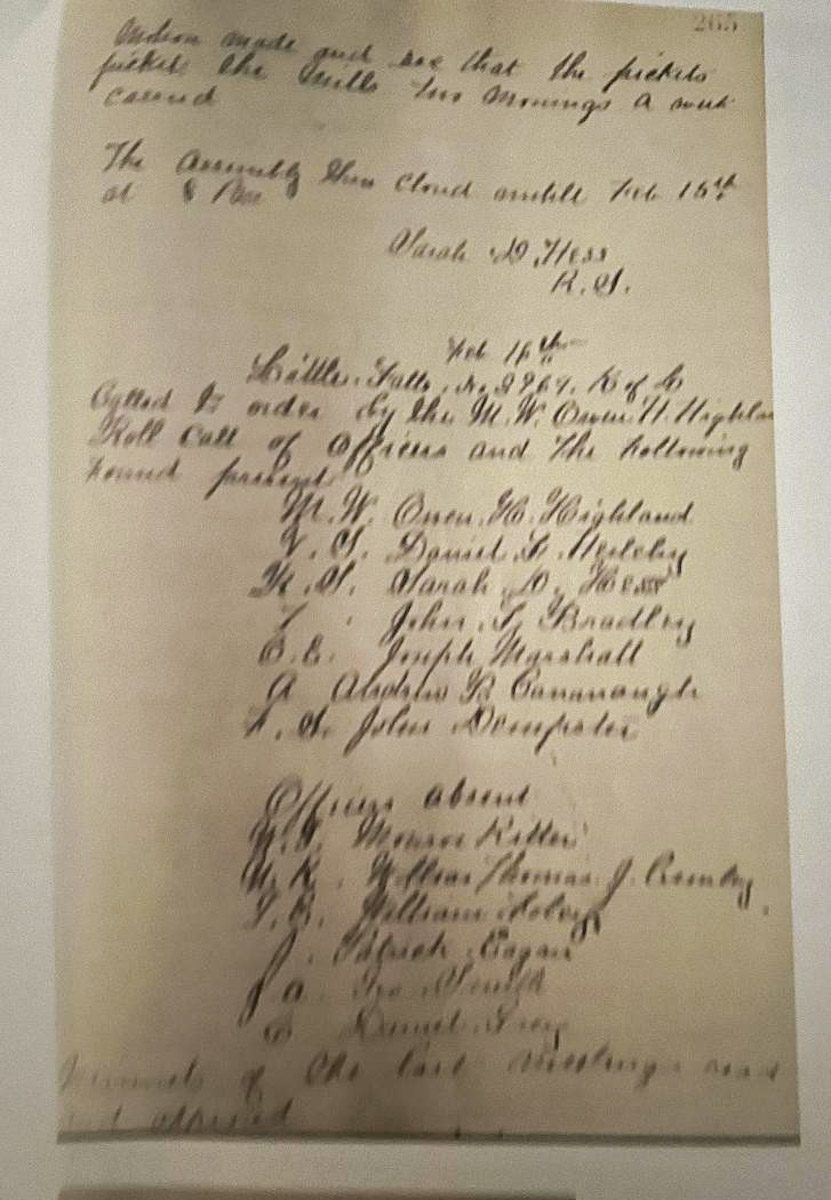 265
Motion made and sec that the pickets
picket the Mills two Mornings a week
carried
The Assembly then closd untill Feb 16th
at 8 Pm
Sarah D. Hess
R. S.
Feb 16th
Little Falls No 2969. K of L
Called to order by the M. W. Owen H. Highlan
Roll Call of Officers and the following
found present
M. W. Owen. H. Highland
V. S. Daniel
R. S. Sarah D. Hess
T. John. S. Bradley
Joseph Marshall
A Andrew B Cavanaugh
John Dempster
Officers absent
Monroe
U. K. Thomas J. Crowley
William
J. Patrick Eagan
J a. Geo Smith
Daniel
Minuets of the last meeting read
and